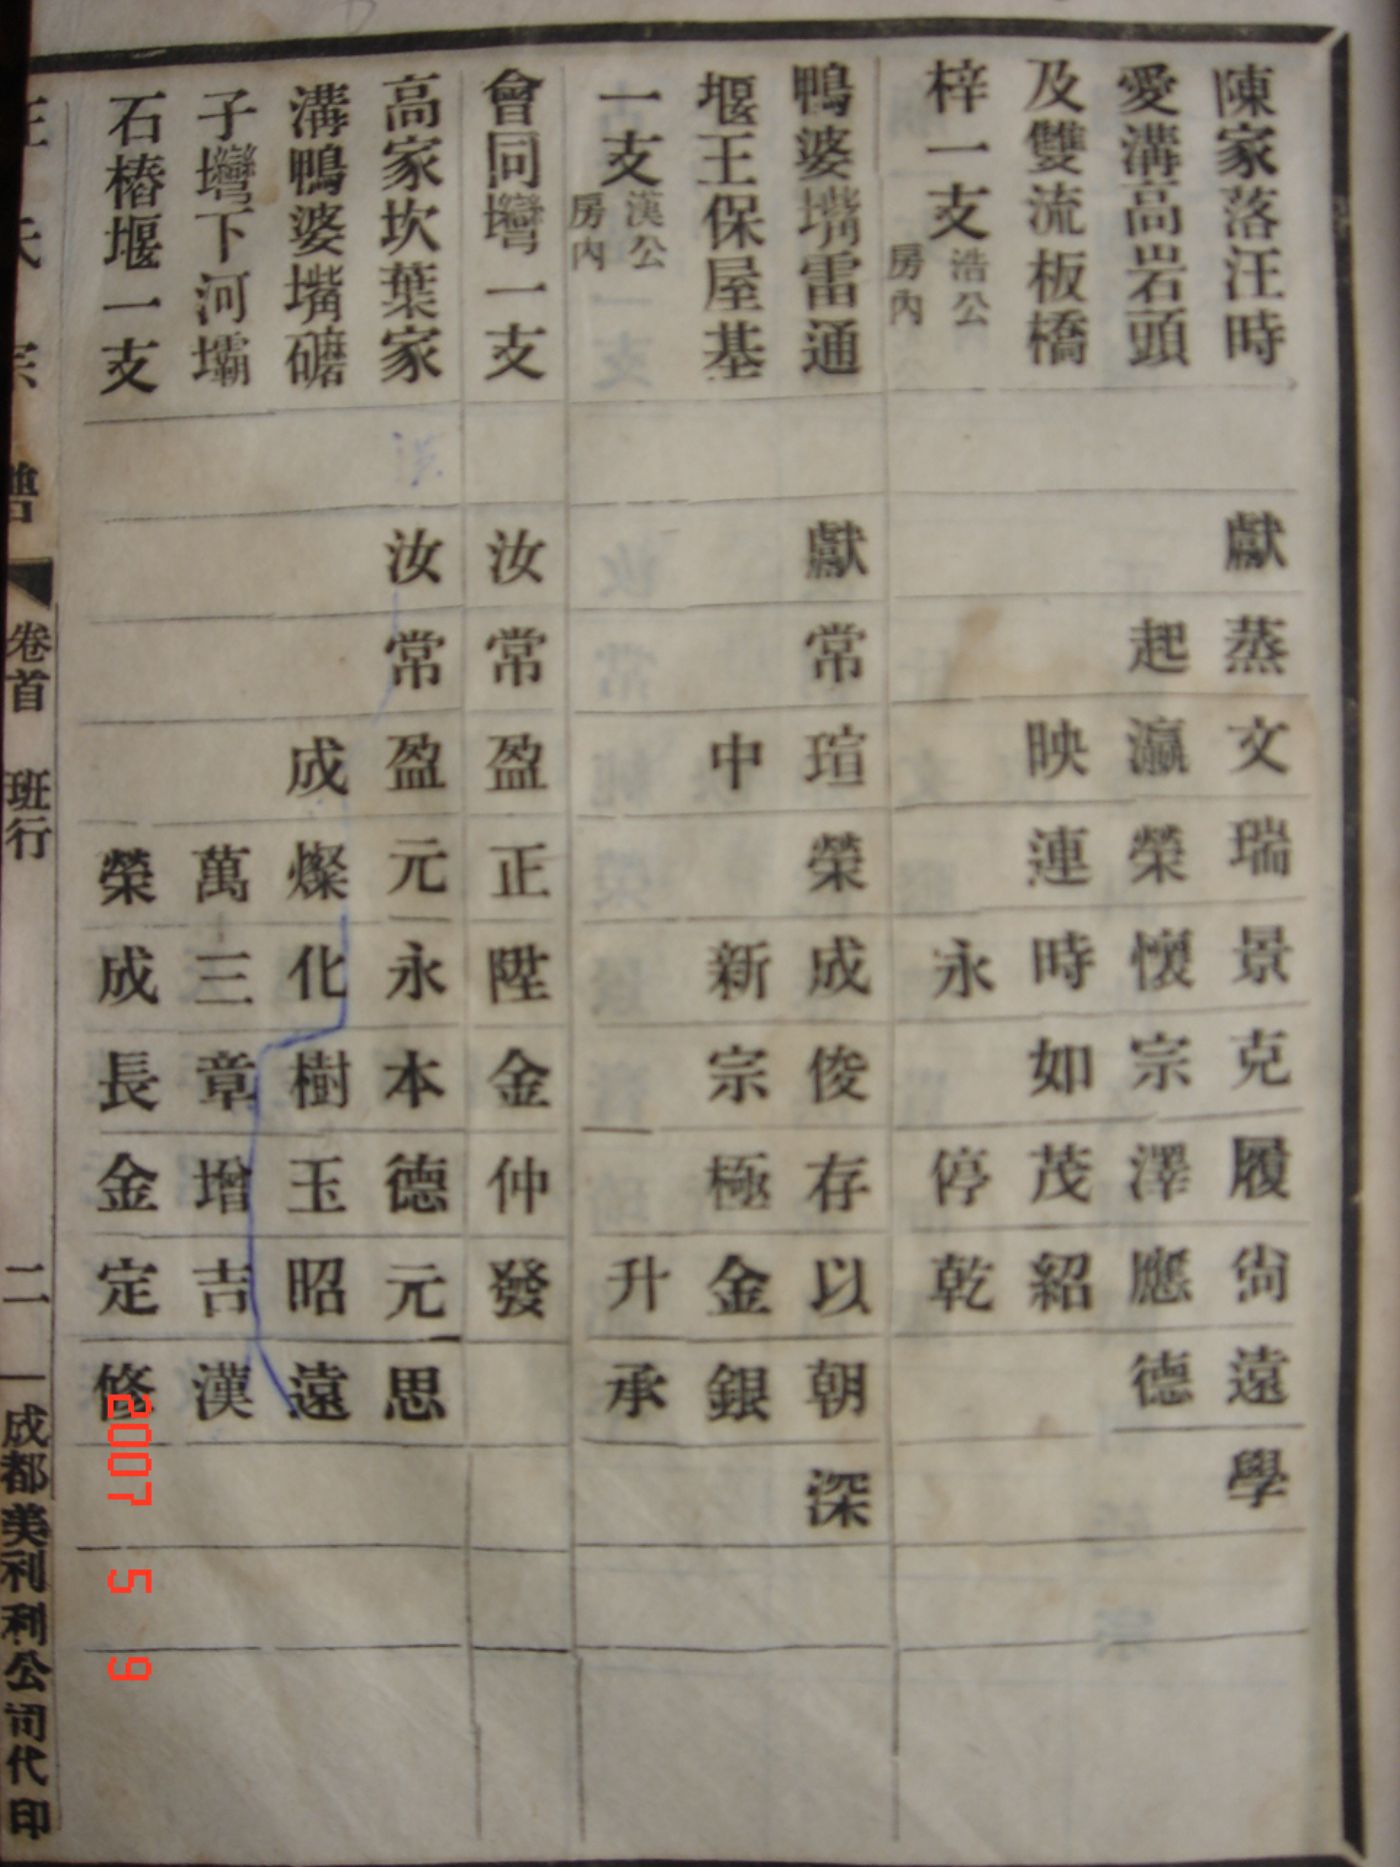 陳家落汪時 獻蒸文瑞景克履尙遠學
愛溝高岩頭 起瀛榮懷宗澤應德
及雙流板橋 映連時如茂紹
梓一支 浩公房內 永停乾
鴨婆嘴雷通 獻常瑄榮成俊存以朝深
堰王保屋基 中新宗極金銀
一支 漢公房內 升承
會同壪一支 汝常盈正陞金仲發
高家坎葉家 汝常盈元永本德元思
溝鴨婆嘴礳 成燦化樹玉昭遠
子壪下河壩 萬三章增吉漢
石樁堰一支 榮成長金定修
汪氏宗譜 卷首 班行 二 成都美利利公司代印
2007 5 9